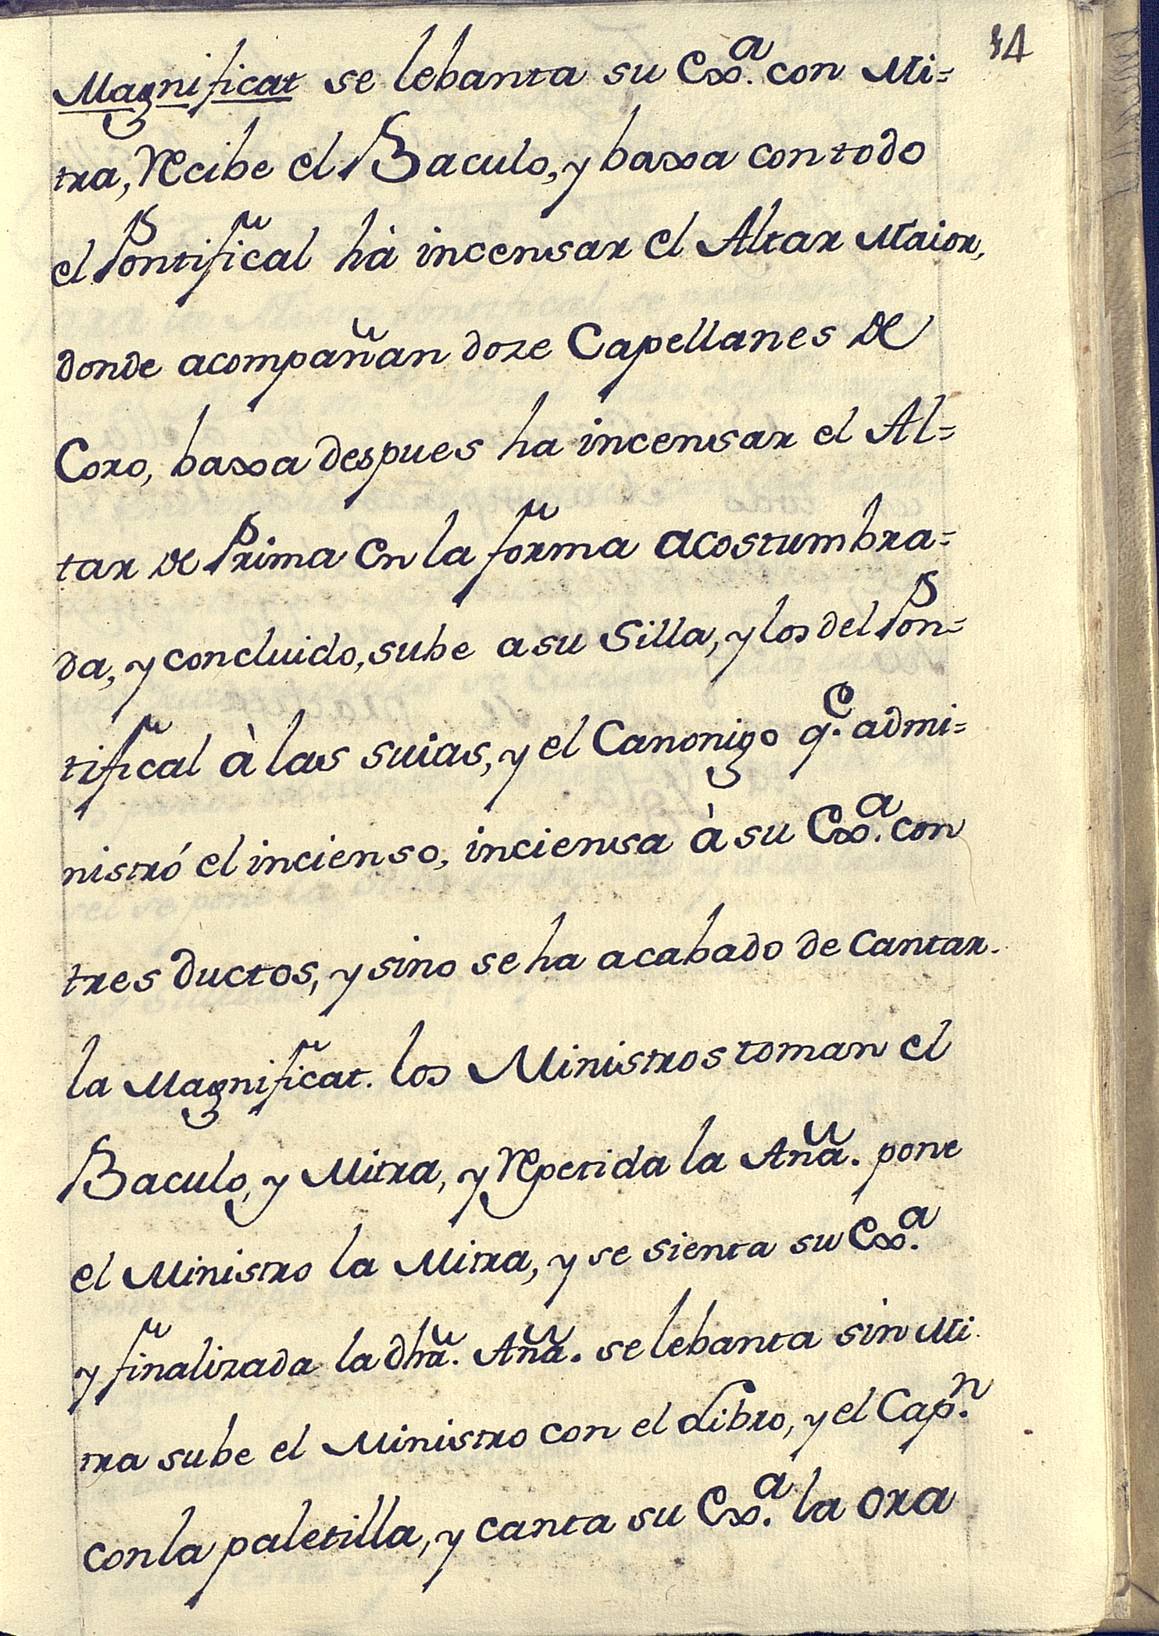 14
Magnificat se lebanta su Exᵃ. con Mi=
tra, Recibe el Baculo, y baxa con todo
el Pontifical hà incensar el Altar Maior,
donde acompañan doze Capellanes de
Coro, baxa despues ha incensar el Al=
tar de Prima en la forma acostumbra=
da, y concluido, sube a su Silla, y los del Pon=
tifical à las suias, y el Canonigo qᵉ. admi=
nistró el incienso, inciensa à su Exᵃ. con
tres ductos, y sino se ha acabado de Cantar.
la Magnificat. los Ministros toman el
Baculo, y Mitra, y Repetida la Aña. pone
el Ministro la Mitra, y se sienta su Exᵃ.
y finalizada la dħa. Aña. se lebanta sin Mi
tra sube el Ministro con el Libro, y el Capⁿ.
con la paletilla, y canta su Exᵃ. la Ora